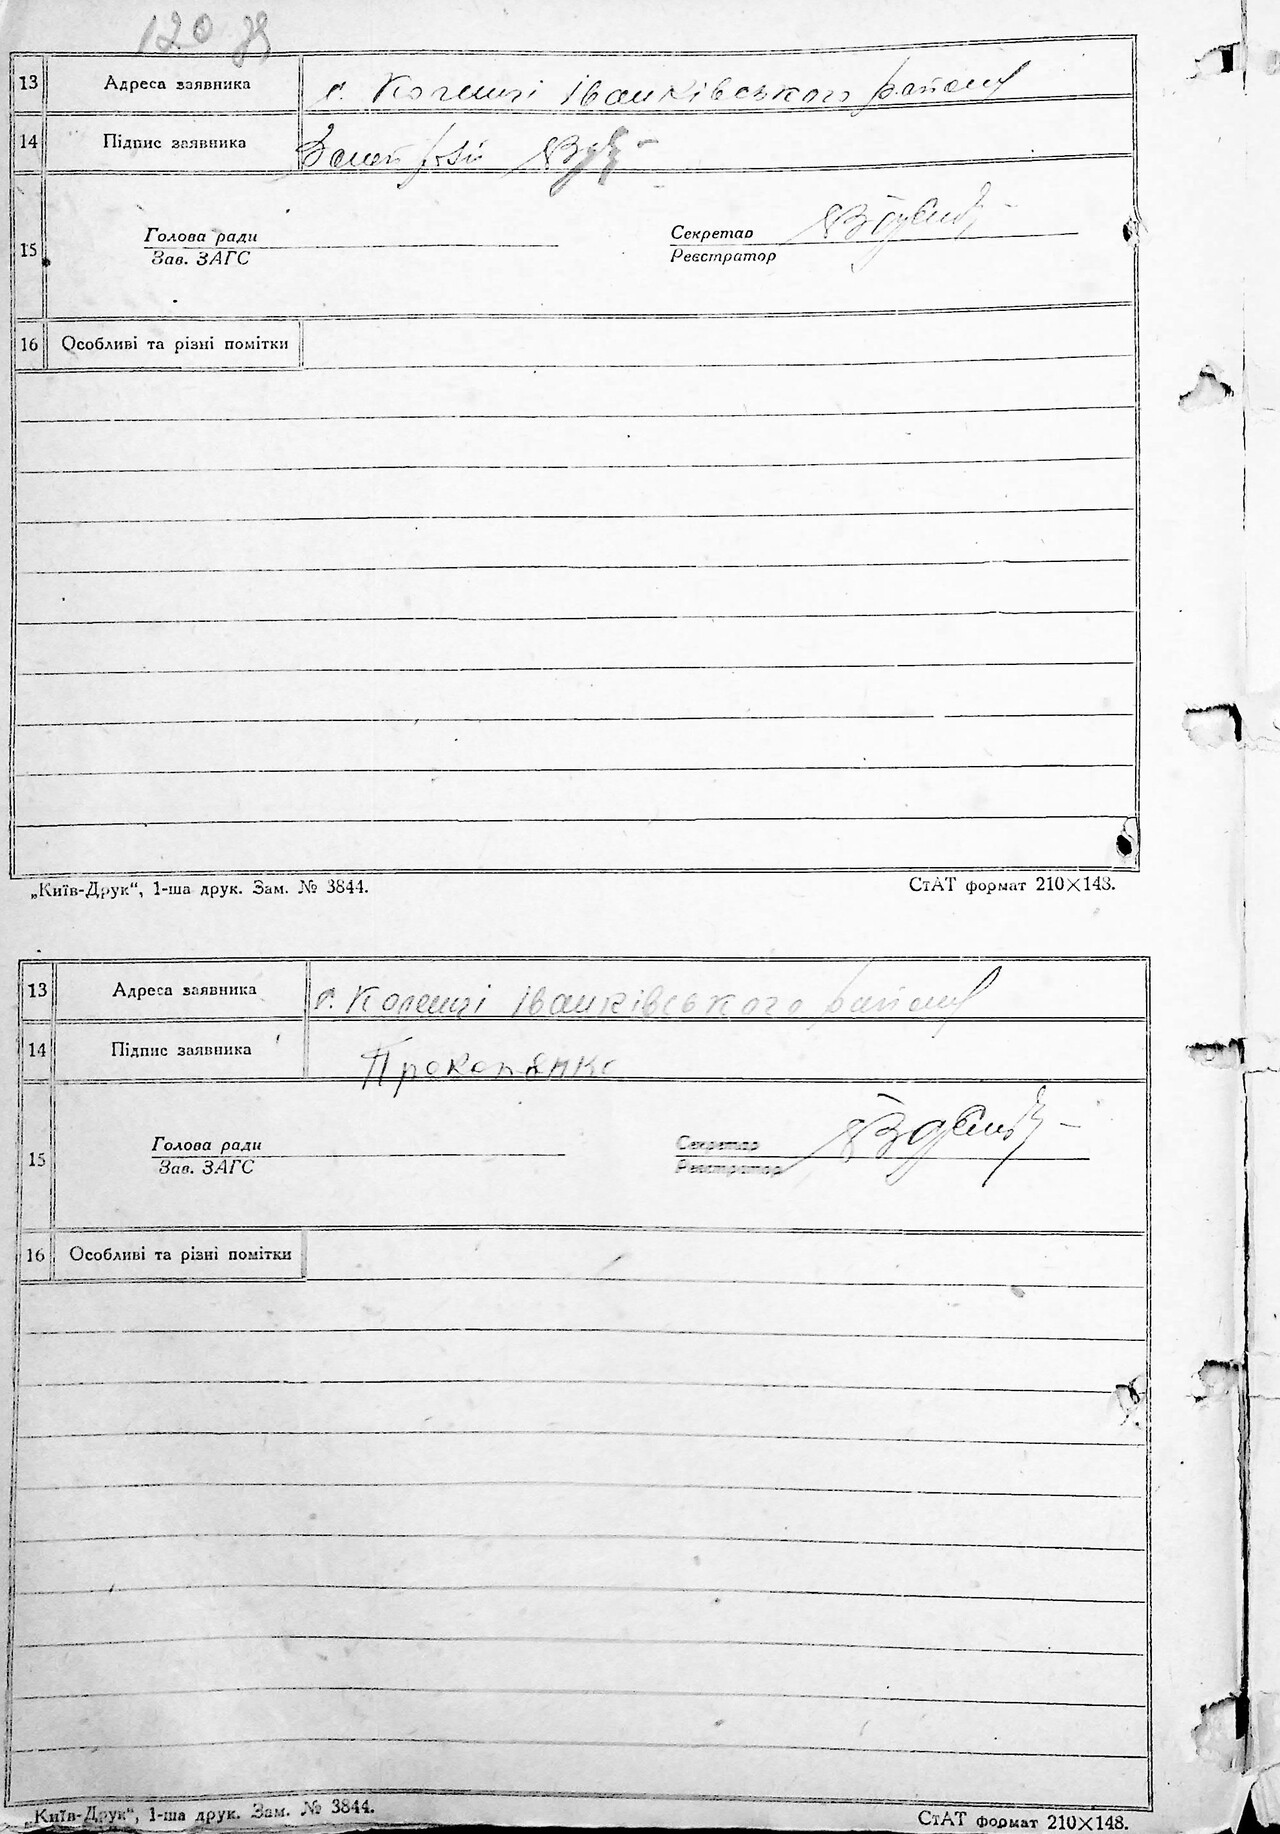 120 зв
13 Адреса заявника с. Коленці Іванківського району
14 Підпис заявника
15 Голова ради Секретар
Зав. ЗАГС Реєстратор
16 Особливі та різні помітки
„Київ-Друк“, 1-ша друк. Зам. № 3844. СтАТ формат 210×148.
13 Адреса заявника с. Коленці Іванківського району
14 Підпис заявника Прокопенко
15 Голова ради Секретар
Зав. ЗАГС Реєстратор
16 Особливі та різні помітки
„Київ-Друк“, 1-ша друк. Зам. № 3844. СтАТ формат 210×148.